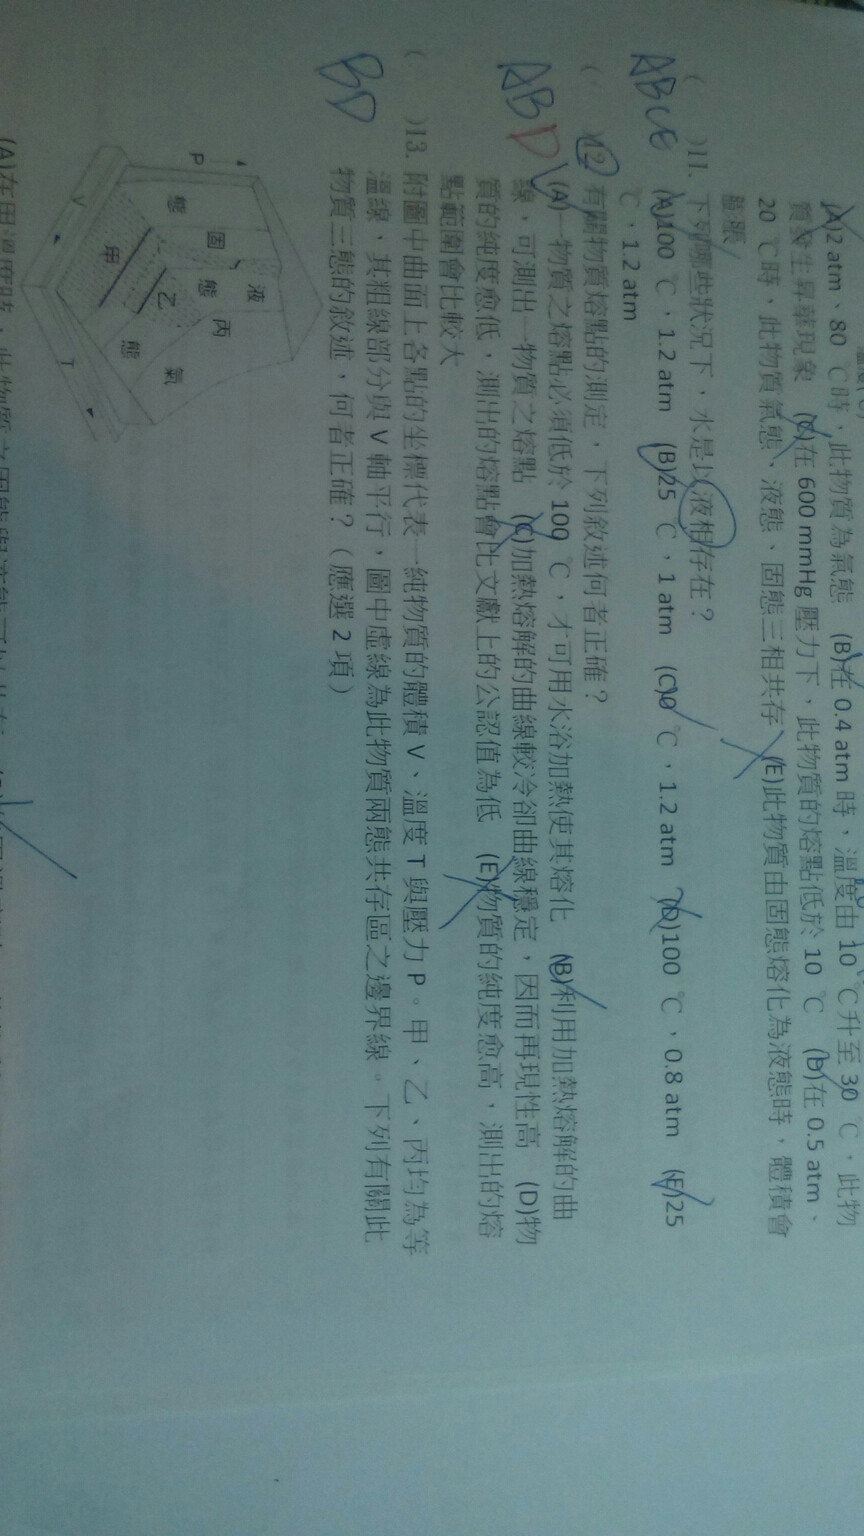 (A)2 atm、80 ℃時，此物質為氣態 (B)在 0.4 atm 時，溫度由 10 ℃升至 30 ℃，此物
質發生昇華現象 (C)在 600 mmHg 壓力下，此物質的熔點低於 10 ℃ (D)在 0.5 atm、
20 ℃時，此物質氣態、液態、固態三相共存 (E)此物質由固態熔化為液態時，體積會
膨脹
ABCE
( )11. 下列哪些狀況下，水是以液相存在？
(A)100 ℃，1.2 atm (B)25 ℃，1 atm (C)0 ℃，1.2 atm (D)100 ℃，0.8 atm (E)25
℃，1.2 atm
ABD
( )12. 有關物質熔點的測定，下列敘述何者正確？
(A)一物質之熔點必須低於 100 ℃，才可用水浴加熱使其熔化 (B)利用加熱熔解的曲
線，可測出一物質之熔點 (C)加熱熔解的曲線較冷卻曲線穩定，因而再現性高 (D)物
質的純度愈低，測出的熔點會比文獻上的公認值為低 (E)物質的純度愈高，測出的熔
點範圍會比較大
BD
( )13. 附圖中曲面上各點的坐標代表一純物質的體積 V、溫度 T 與壓力 P。甲、乙、丙均為等
溫線，其粗線部分與 V 軸平行，圖中虛線為此物質兩態共存區之邊界線。下列有關此
物質三態的敘述，何者正確？（應選 2 項）
P
液
固
態
態
丙
氣
乙
態
甲
V
T